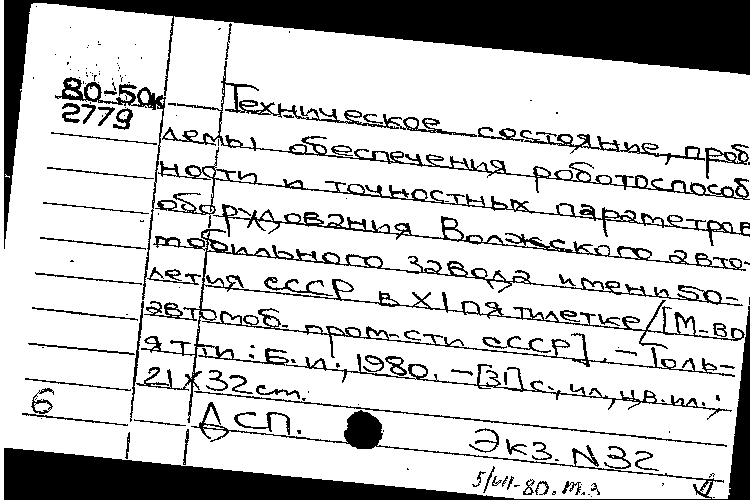 80-50к
2779
Техническое состояние, проб
лемы обеспечения роботоспособ
ности и точностных параметров
оборудования Волжского авто-
мобильного завода имени 50-
летия СССР в XI пятилетке/[М-во
автомоб. пром-сти СССР]. – Толь=
ятти: Б.и., 1980. – [31] с., ил., цв.ил.;
21 X 32 cm.
6
ДСП.
Экз. N32
5/VII-80. т.3